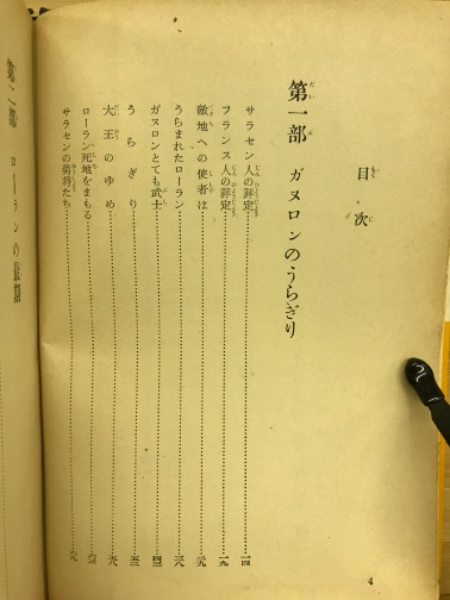 目次
第一部 ガヌロンのうらぎり
サラセン人の評定 一四
フランス人の評定 一九
敵地への使者は 二九
うらまれたローラン 三八
ガヌロンとても武士 四三
うらぎり 五三
大王のゆめ 五九
ローラン死地をまもる 六三
サラセンの勇将たち 六九
4
第二部 ローランの最期